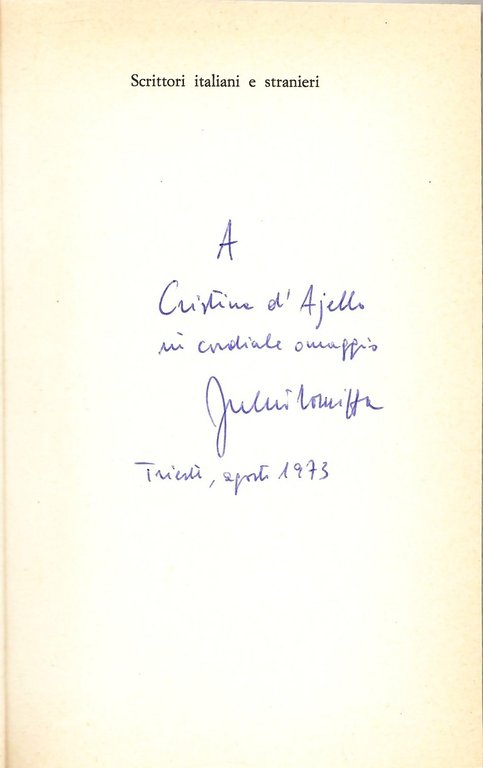 Scrittori italiani e stranieri
A
Cristina d'Ajello
in cordiale omaggio
Trieste, agosto 1973